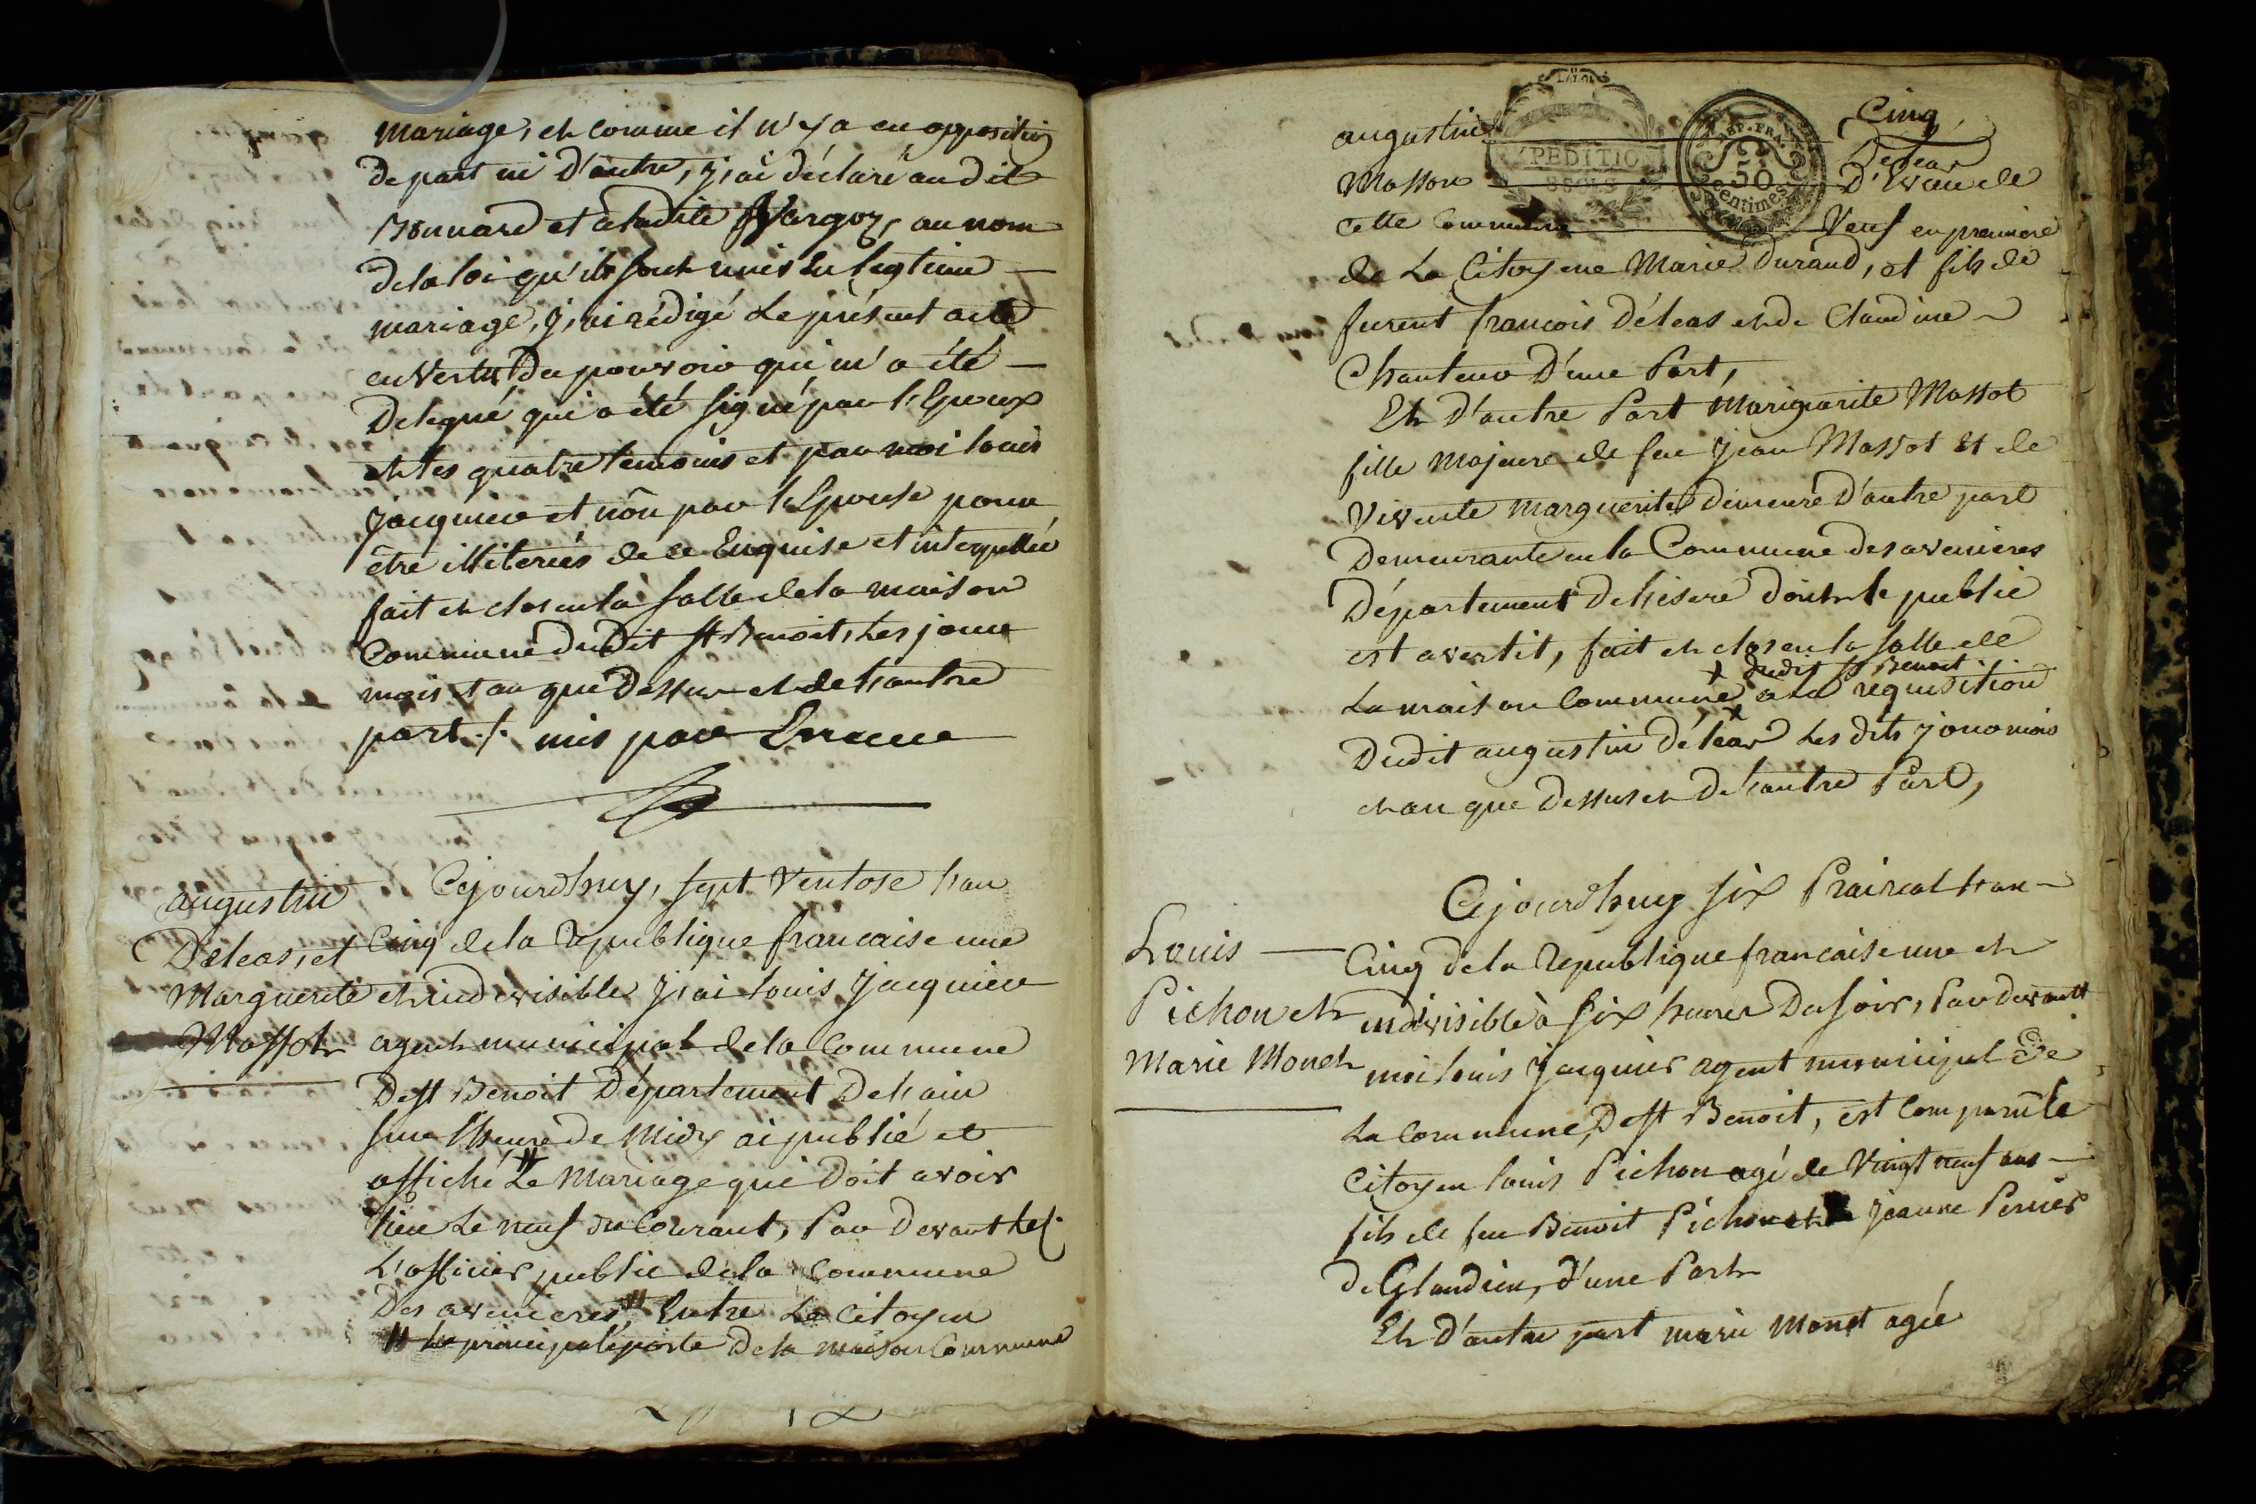 mariage, et comme il n'y a eu opposition
de part ni d'autre, j'ai déclaré audit
Bonnard et à ladite Nargoz, au nom
de la loi qu'ils sont unis en legtime
mariage, j'ai rédigé le présent acte
en vertu du pouvoir qui m'a été
délegué qui a été signé par l'Epoux
et les quatre temoins et par moi louis
jacquier et non par l'Epouse pour
être illiterés de ce Enquise et interpellée
fait et clos en la salle de la maison
commune dudit st Benoit, les jour
mois et an que dessus et de l'autre
part ./. mis par Erreur
augustin
Déleas, et
Marguerite
Massot
Cejourdhuy, sept Ventose l'an
Cinq de la republique francaise une
et indivisible j'ai louis jacquier
agent municipal de la commune
De st Benoit Département De l'ain
sur l'heure de midy ai publié et
affiché # Le Mariage qui doit avoir
lieu le neuf du courant, Par devant
L'officier public de la commune
Des avenieres, Entre Le Citoyen
# la principale porte de la maison Commune
Cinq
augustin
EXPEDITION
REP. FRA.
50
centimes
Deleas
Masson
D'Evieu de
cette Commune
Veuf en premiere
de La Citoyene Marie Durand, et fils de
furent francois Déleas et de Claudine
Chanteur D'une Part,
Et D'autre Part Marguerite Massot
fille majeure de feu jean Massot et de
vivente marguerite demeure D'autre part
Demeurante en la Commune des avenieres
Département de lisere dont le public
est avertit, fait et clos en la salle de
x dudit st Benoit
La maison Commune x a la requisition
Dudit augustin Déleas les dits jour mois
et an que Dessus et De l'autre Part,
Louis
Pichon et
Marie Monet
Cejourdhuy six Praireal l'an
Cinq de la Republique francaise une et
indivisible à six heures Du soir, Par devant
moi louis jacquier agent municipal de
La commune, De st Benoit, est comparu le
Citoyen louis Pichon agé de Vingt neuf ans
fils de feu Benoit Pichon et jeanne Perrier
De Glandieu, d'une Part
Et D'autre part marie monet agée